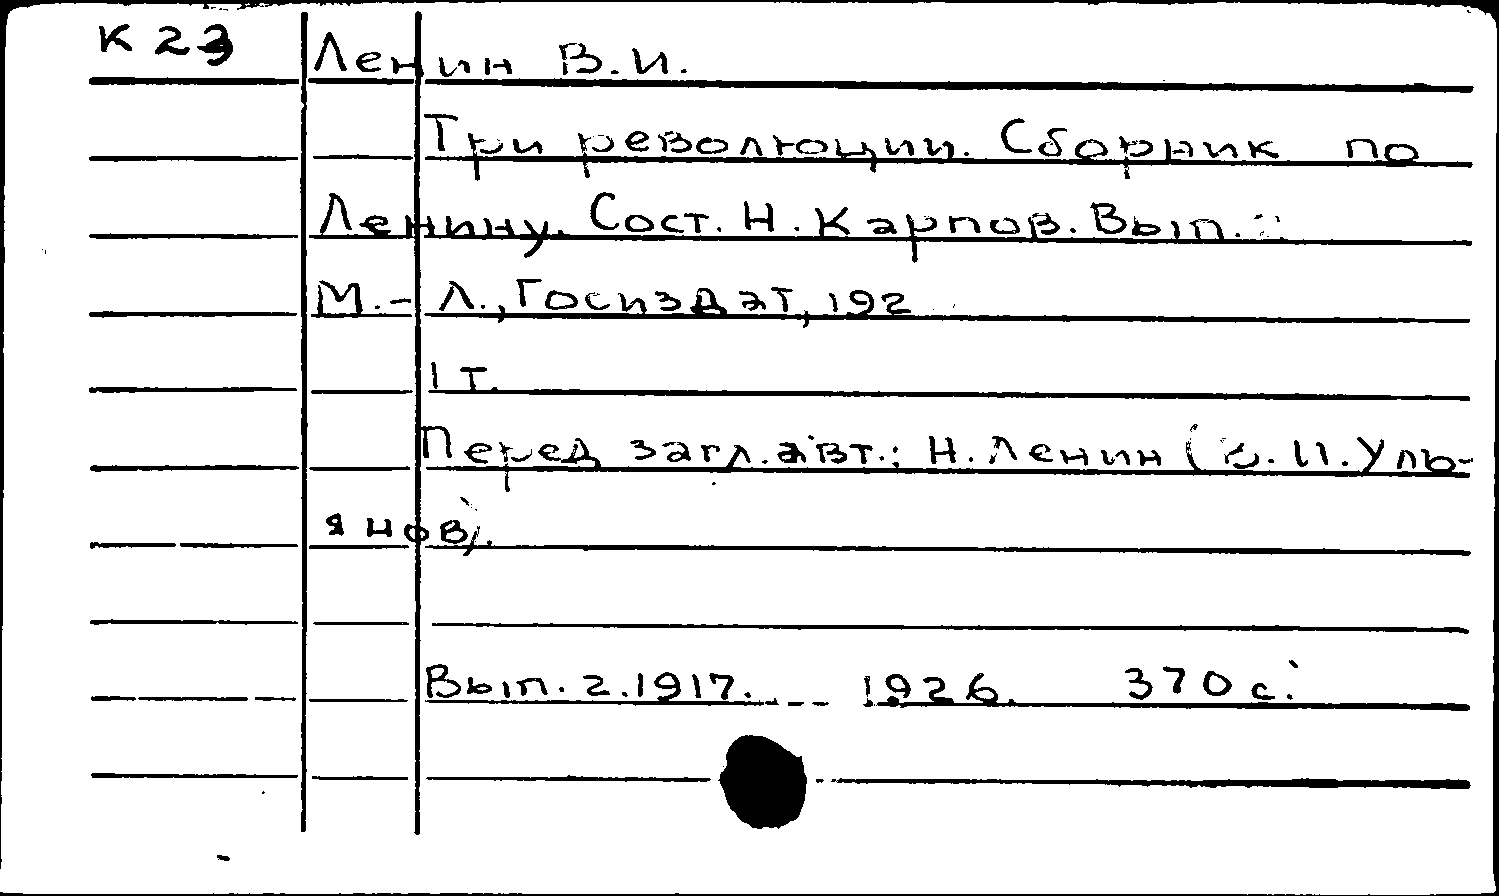 К 23
Ленин В.И.
Три революции. Сборник по
Ленину. Сост. Н. Карпов. Вып.
М.-Л., Госиздат, 192
1 т.
Перед загл. авт.: Н. Ленин (В. И. Уль-
янов).
Вып. 2. 1917. 1926. 370 с.